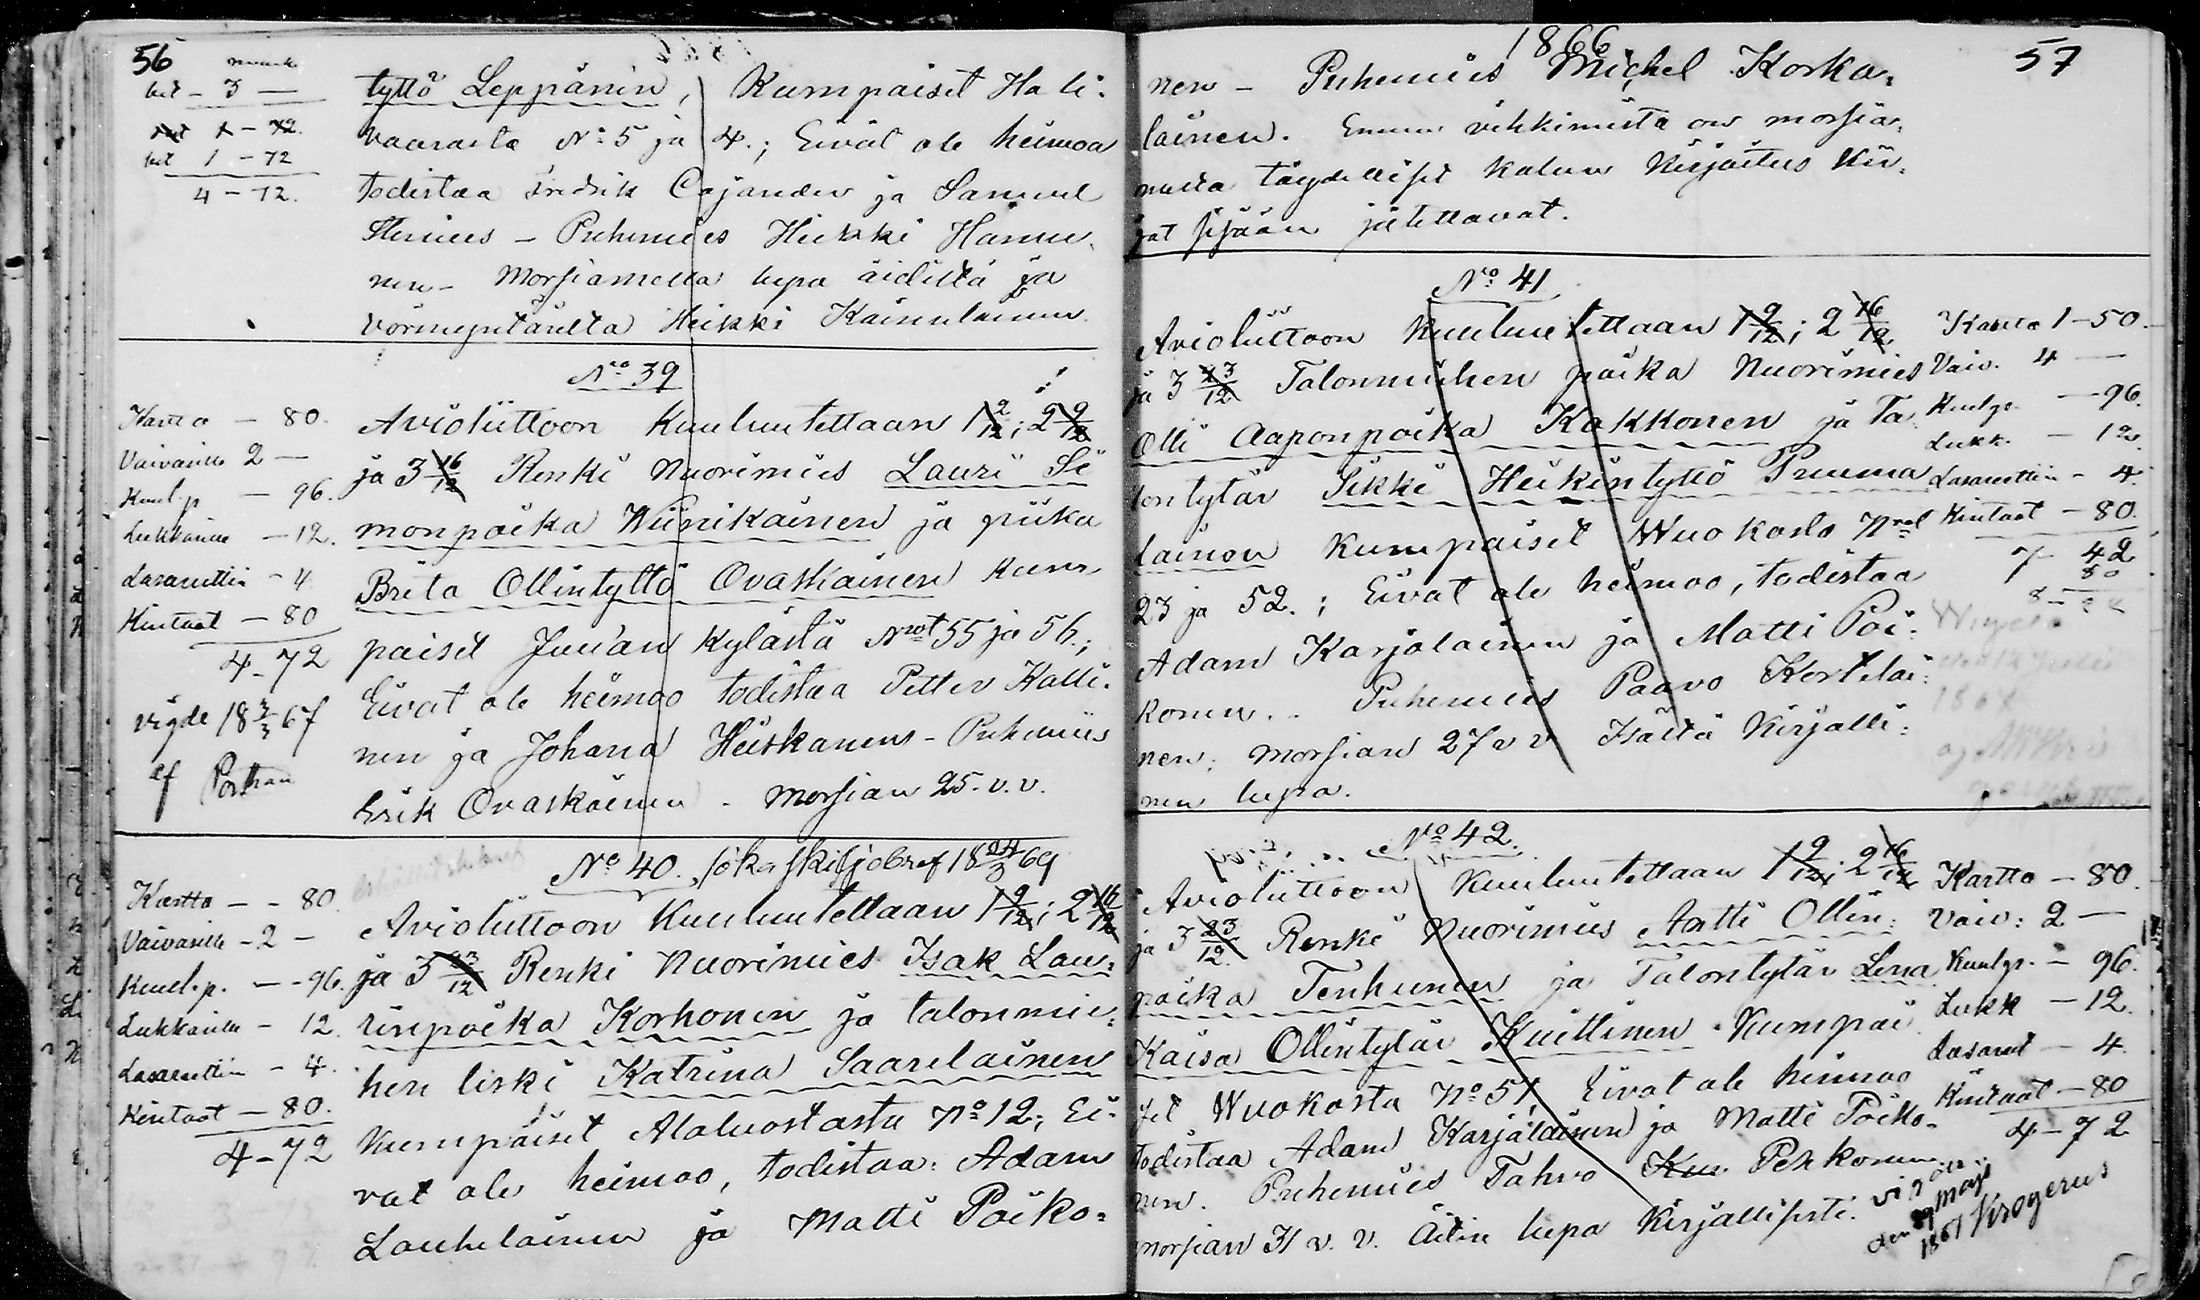 56
mark
kel - 3 —
1 - 72.
kel 1 - 72
4 - 72.
tyttö Leppänin, Kumpaiset Hali-
vaarasta N:o 5 ja 4.; Eivät ole heimoa
todistaa Fredrik Cajander ja Samuel
Heinies - Puhemies Heikki Hämä-
nen - Morsiamella lupa äidiltä ja
vörmyntäriltä Heikki Kainulainen.
No 39
Kartta - 80.
Vaivasille 2 —
Kuul.p - 96.
Lukkarille - 12.
Lasarettiin - 4.
Kintaat - 80
4 - 72
vigde 18 3/3 67
af Porthan
Avioliittoon Kuulutettaan 1 2/12; 2 9/12
ja 3 16/12 Renki Nuorimies Lauri Si
monpoika Wiinikainen ja piika
Brita Ollintyttö Ovaskainen Kum
paiset Juuan Kylästä Nrot 55 ja 56.;
Eivat ole heimoo todistaa Petter Halli-
nen ja Johana Heiskanens - Puhemiis
Erik Ovaskainen - morsian 25. v. v.
No 40. söka skiljobref 18 24/3 69
Kartta - - 80.
Vaivasille - 2 -
Kuul.p. - - 96.
Lukkarille - 12.
Lasarettiin - 4.
Kintaat - 80.
4 - 72
Avioliittoon Kuulutettaan 1 9/12; 2 16/12
ja 3 23/12 Renki Nuorimies Isak Lau-
rinpoika Korhonen ja talonmie-
hen leski Katrina Saarelainen
Kumpaiset Alaluostasta No 12; Ei-
vat ole heimoo, todistaa: Adam
Lauhelainen ja Matti Poiko-
1866
57
nen - Puhemies Michel Korka-
lainen. Ennen vihkimistä on morsia-
melta täydelliset kalun kirjoitus kir-
jat sisään jätettavat.
No 41
Avioliittoon Kuulutettaan 1 9/12; 2 16/12
ja 3 23/12 Talonmiehen poika Nuorimies
Olli Aaponpoika Kakkonen ja Ta
lontytär Sikki Heikintyttö Pruma
lainen Kumpaiset Wuokasta Nrot
23 ja 52.; Eivat ole heimoo, todistaa
Adam Karjalainen ja Matti Poi-
konen. Puhemies Paavo Kortelai-
nen; morsian 27 v v Isältä Kirjalli-
nen lupa.
Kartta 1 - 50.
Vaiv. 4 —
Kuulp. - 96.
Lukk. - 12.
Lasarettiin - 4.
Kintaat - 80.
7 42
80
No 42.
Avioliittoon Kuulutettaan 1 9/12; 2 16/12
ja 3 23/12 Renki Nuorimies Antti Ollin-
poika Tenhunen ja Talontytär Lena
Kaisa Ollintytär Kuittinen. Kumpai
set Wuokasta No 51 Eivat ole heimoo
todistaa Adam Karjalainen ja Matti Poiko-
nen. Puhemies Tahvo Pekkonen
morsian 31 v. v. Äitin lupa Kirjallisesti.
Kartta - 80.
Vaiv: 2 —
Kuulp. - 96.
Lukk - 12.
Lasaret - 4.
Kintaat - 80
4 - 72
vigde
den 29 Maji
1867 Krogerus